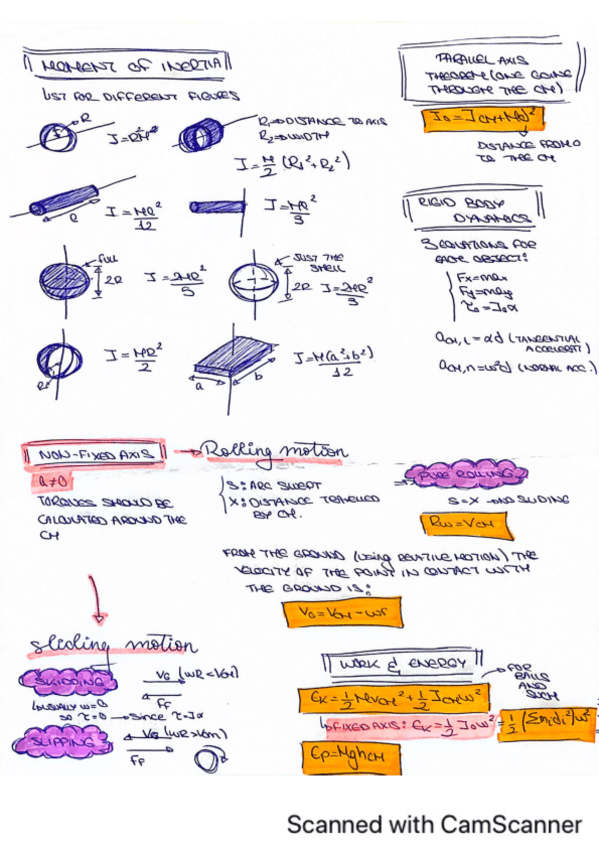 MOMENT OF INERTIA
LIST FOR DIFFERENT FIGURES
R
I=RM²
R₁=>DISTANCE TO AXIS
R₂=>WIDTH
I=M/2 (R₁²+R₂²)
l
I=Ml²/12
I=Ml²/3
FULL
2R
I=2MR²/5
JUST THE
SHELL
2R
I=2MR²/3
R
I=MR²/2
a
b
I=M(a²+b²)/12
PARALLEL AXIS
THEOREM (ONE GOING
THROUGH THE CM)
I₀=I_CM+Md²
DISTANCE FROM O
TO THE CM
RIGID BODY
DYNAMICS
3 EQUATIONS FOR
EACH OBJECT:
Fx=max
Fy=may
τ₀=I₀α
a_CM,t=αd (TANGENTIAL
ACCELERAT)
a_CM,n=ω²d (NORMAL ACC.)
NON-FIXED AXIS → Rolling motion
a≠0
TORQUES SHOULD BE
CALCULATED AROUND THE
CM
S: ARC SWEPT
X: DISTANCE TRAVELLED
BY CM.
PURE ROLLING
S=X → NO SLIDING
Rω=V_CM
FROM THE GROUND (USING RELATIVE MOTION) THE
VELOCITY OF THE POINT IN CONTACT WITH
THE GROUND IS:
V_G=V_CM-ωr
sliding motion
SKIDDING
V_G (ωR<V_CM)
F_f
USUALLY ω=0
SO τ=0 → Since τ=Iα
SLIPPING
V_G (ωR>V_CM)
F_f
WORK & ENERGY
FOR
BALLS
AND
SUCH
E_K=1/2 MV_CM²+1/2 I_CMω²
FIXED AXIS: E_K=1/2 I₀ω²=1/2 (Σm_id_i²)ω²
E_P=Mgh_CM
Scanned with CamScanner